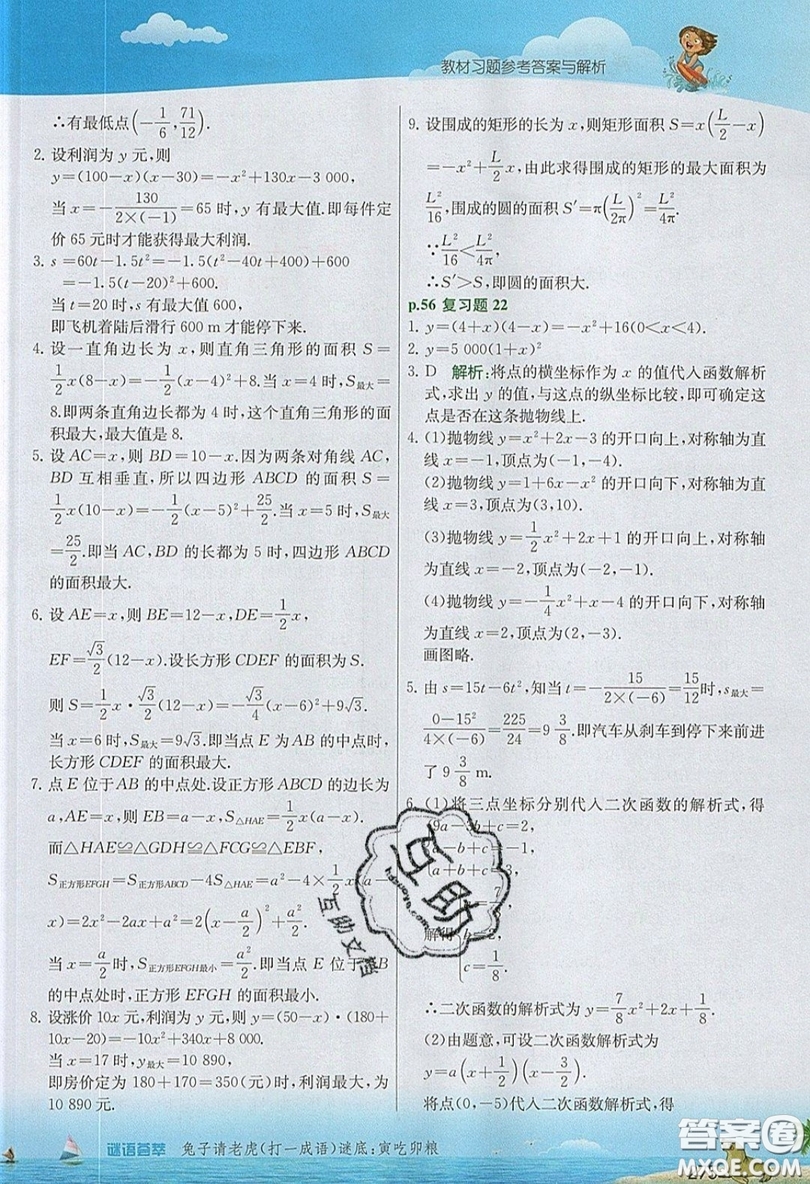 教材习题参考答案与解析
∴有最低点(-1/6, 71/12).
2. 设利润为 y 元,则
y=(100-x)(x-30)=-x²+130x-3 000,
当 x=-130/(2×(-1))=65 时,y 有最大值.即每件定
价 65 元时才能获得最大利润.
3. s=60t-1.5t²=-1.5(t²-40t+400)+600
=-1.5(t-20)²+600.
当 t=20 时,s 有最大值 600,
即飞机着陆后滑行 600 m 才能停下来.
4. 设一直角边长为 x,则直角三角形的面积 S=
1/2 x(8-x)=-1/2(x-4)²+8.当 x=4 时,S最大=
8.即两条直角边长都为 4 时,这个直角三角形的面
积最大,最大值是 8.
5. 设 AC=x,则 BD=10-x.因为两条对角线 AC,
BD 互相垂直,所以四边形 ABCD 的面积 S=
1/2 x(10-x)=-1/2(x-5)²+25/2.当 x=5 时,S最大
=25/2.即当 AC,BD 的长都为 5 时,四边形 ABCD
的面积最大.
6. 设 AE=x,则 BE=12-x,DE=1/2 x,
EF=√3/2(12-x).设长方形 CDEF 的面积为 S.
则 S=1/2 x·√3/2(12-x)=-√3/4(x-6)²+9√3.
当 x=6 时,S最大=9√3.即当点 E 为 AB 的中点时,
长方形 CDEF 的面积最大.
7. 点 E 位于 AB 的中点处.设正方形 ABCD 的边长为
a,AE=x,则 EB=a-x,S△HAE=1/2 x(a-x).
而△HAE≌△GDH≌△FCG≌△EBF,
S正方形EFGH=S正方形ABCD-4S△HAE=a²-4×1/2 x(a-
x)=2x²-2ax+a²=2(x-a/2)²+a²/2.
当 x=a/2 时,S正方形EFGH最小=a²/2.即当点 E 位于 AB
的中点处时,正方形 EFGH 的面积最小.
8. 设涨价 10x 元,利润为 y 元,则 y=(50-x)·(180+
10x-20)=-10x²+340x+8 000.
当 x=17 时,y最大=10 890,
即房价定为 180+170=350(元)时,利润最大,为
10 890 元.
9. 设围成的矩形的长为 x,则矩形面积 S=x(L/2-x)
=-x²+L/2 x,由此求得围成的矩形的最大面积为
L²/16,围成的圆的面积 S′=π(L/2π)²=L²/4π.
∵L²/16<L²/4π,
∴S′>S,即圆的面积大.
p.56 复习题 22
1. y=(4+x)(4-x)=-x²+16(0<x<4).
2. y=5 000(1+x)²
3. D 解析:将点的横坐标作为 x 的值代入函数解析
式,求出 y 的值,与这点的纵坐标比较,即可确定这
点是否在这条抛物线上.
4. (1)抛物线 y=x²+2x-3 的开口向上,对称轴为直
线 x=-1,顶点为(-1,-4).
(2)抛物线 y=1+6x-x² 的开口向下,对称轴为直
线 x=3,顶点为(3,10).
(3)抛物线 y=1/2 x²+2x+1 的开口向上,对称轴
为直线 x=-2,顶点为(-2,-1).
(4)抛物线 y=-1/4 x²+x-4 的开口向下,对称轴
为直线 x=2,顶点为(2,-3).
画图略.
5. 由 s=15t-6t²,知当 t=-15/(2×(-6))=15/12 时,s最大=
(0-15²)/(4×(-6))=225/24=9 3/8.即汽车从刹车到停下来前进
了 9 3/8 m.
6. (1)将三点坐标分别代入二次函数的解析式,得
9a-3b+c=2,
a-b+c=-1,
a+b+c=3,
解得
=2,
c=1/8.
∴二次函数的解析式为 y=7/8 x²+2x+1/8.
(2)由题意,可设二次函数解析式为
y=a(x+1/2)(x-3/2).
将点(0,-5)代入二次函数解析式,得
互助
互助文档
谜语荟萃 兔子请老虎(打一成语)谜底:寅吃卯粮
答案圈
MXQE.COM